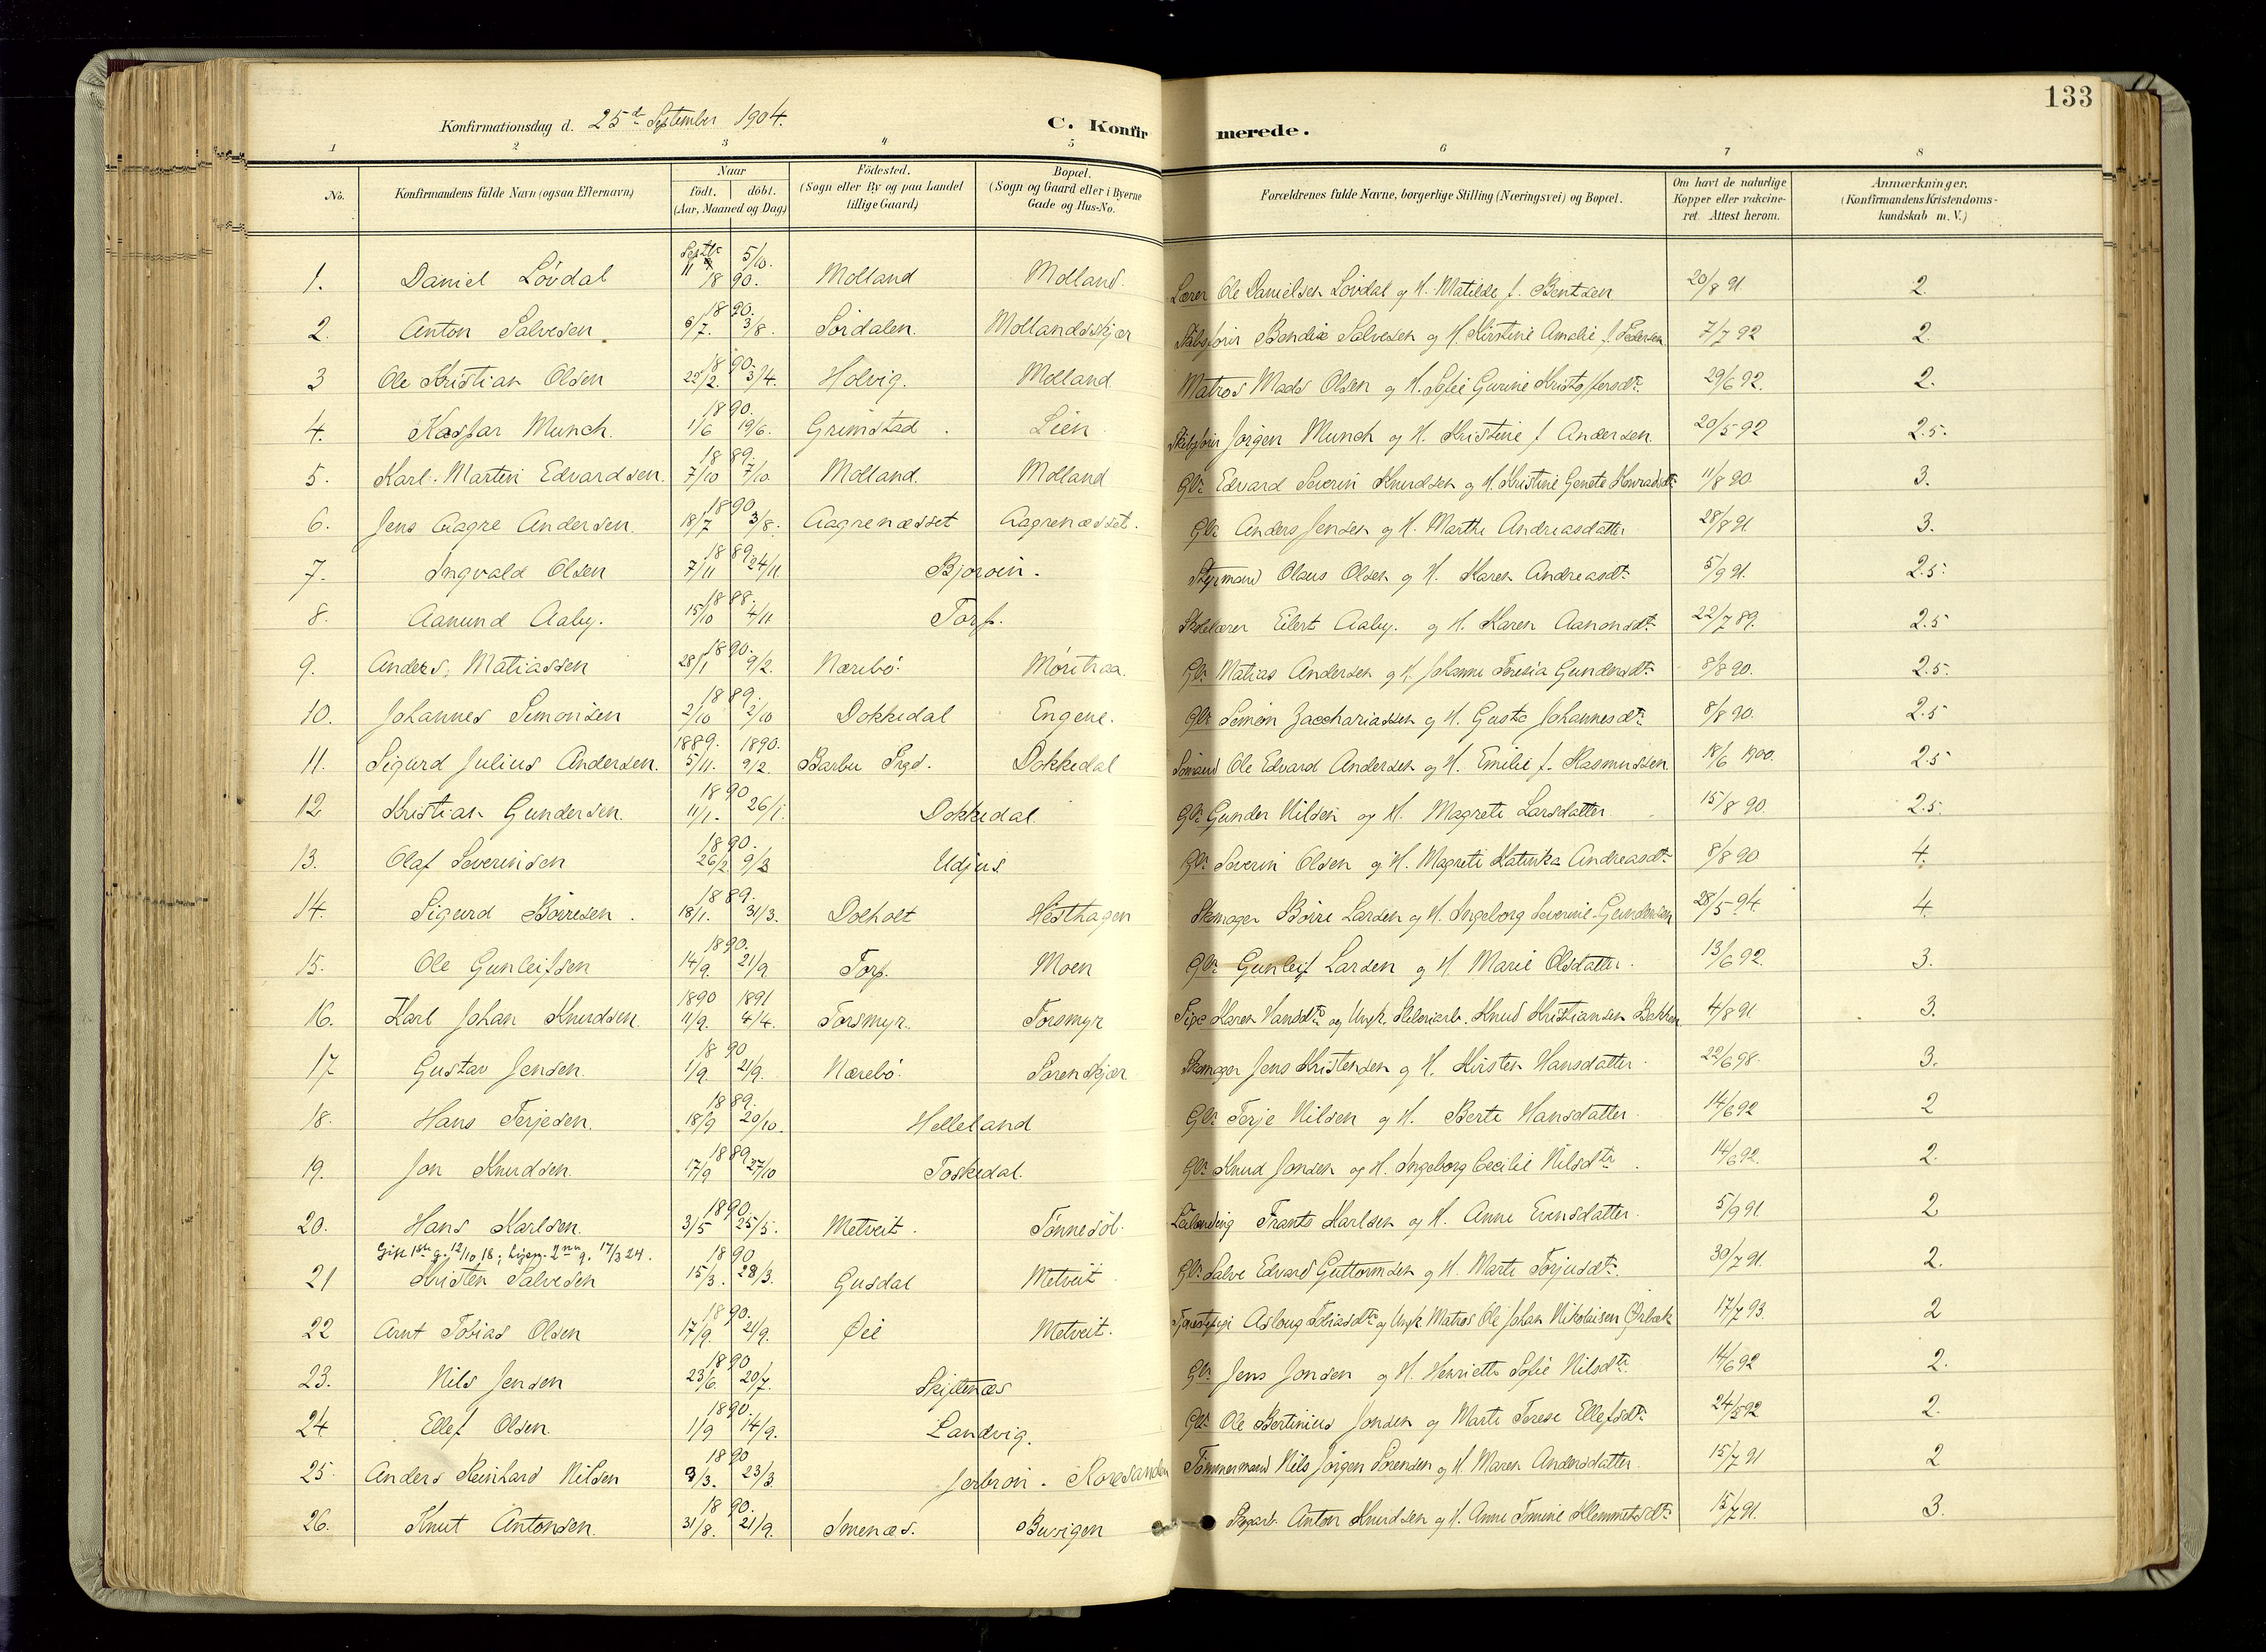 133
Konfirmationsdag d. 25de September 1904.
C. Konfirmerede.
1 2 3 4 5 6 7 8
No. Konfirmandens fulde Navn (ogsaa Efternavn) Naar født. døbt. (Aar, Maaned og Dag) Fødested. (Sogn eller By og paa Landet tillige Gaard) Bopæl. (Sogn og Gaard eller i Byerne Gade og Hus-No. Forældrenes fulde Navne, borgerlige Stilling (Næringsvei) og Bopæl. Om havt de naturlige Kopper eller vakcineret. Attest herom. Anmærkninger. (Konfirmandens Kristendomskundskab m. V.)
1. Daniel Løvdal Septbr 11 5/10. 1890. Molland Molland. Lærer Ole Danielsen Løvdal og H. Matilde f. Bentsen 20/8 91 2.
2. Anton Salvesen 1890. 6/7. 3/8. Sørdalen. Mollandsskjær Skibsfører Bendix Salvesen og H. Kirstine Amalie f. Pedersen 7/7 92 2.
3 Ole Kristian Olsen 1890. 22/2. 3/4. Holvig. Molland Matros Mads Olsen og H. Sofie Gurine Kristoffersdtr. 29/6 92. 2.
4. Kaspar Munch. 1890. 1/6 19/6. Grimstad. Lien Skibsfører Jørgen Munch og H. Kristine f. Andersen. 20/5 92 2.5.
5. Karl Martin Edvardsen. 1889. 7/10 7/10. Molland. Molland Gbr. Edvard Severin Knudsen og H. Kristine Genete Konradsdtr 11/8 90. 3.
6. Jens Aagre Andersen. 1890 18/7 3/8. Aagrenæsset Aagrenæsset. Gbr. Anders Jensen og H. Marthe Andreasdatter 28/8 91. 3.
7. Ingvald Olsen 1889. 7/11 24/11. Bjorøin. Styrmand Olaus Olsen og H. Karen Andreasdtr. 5/9 91. 2.5.
8. Aanund Aaby. 1888. 15/10 4/11 Torp. Skolelærer Eilert Aaby. og H. Karen Aanonsdtr. 22/7 89. 2.5
9. Anders Matiassen 1890. 28/1 9/2. Nærebø. Moritraa. Gbr. Matias Andersen og H. Johanne Teresia Gundersdtr. 8/8 90. 2.5.
10. Johannes Simonsen 1889. 2/10 2/10 Dokkedal Engene. Gbr. Simon Zacchariassen og H. Gusta Johannesdtr. 8/8 90. 2.5
11. Sigurd Julius Andersen. 1889. 1890. 5/11. 9/2. Barbu Prgd. Dokkedal Sømand Ole Edvard Andersen og H. Emilie f. Rasmussen 18/6 1900. 2.5
12. Kristian Gundersen. 1890 11/1. 26/1. Dokkedal. Gbr. Gunder Nilsen og H. Magrete Larsdatter. 15/8 90 2.5.
13. Olaf Severinsen 1890. 26/2 9/3 Udjus Gbr. Severin Olsen og H. Magrete Katinka Andreasdtr. 8/8 90 4.
14. Sigurd Børresen. 1889. 18/1. 31/3. Dolholt Hesthagen Skomager Børre Larsen og H. Ingeborg Severine Gundersen 28/5 94. 4.
15. Ole Gunleifsen 1890. 14/9. 21/9 Torp. Moen Gbr. Gunleif Larsen og H. Marie Olsdatter. 13/6 92. 3.
16. Karl Johan Knudsen. 1890 1891 11/9. 4/4. Torsmyr. Torsmyr Pige Karen Hansdtr og Ungk. Knud Kristiansen Bakken 4/8 91 3.
17 Gustav Jensen. 1890 1/9. 21/9. Nærebø. Sorenskjær. Skomager Jens Kristensen og H. Kirsten Hansdatter. 22/6 98. 3.
18. Hans Terjesen. 1889. 18/9 20/10. Helleland Gbr. Terje Nilsen og H. Berte Hansdatter. 14/6 92 2
19. Jon Knudsen. 1889 17/9 27/10 Toskedal. Gbr. Knud Jonsen og H. Ingeborg Cecilie Nilsdtr. 14/6 92. 2.
20. Hans Karlsen. 1890. 3/5 25/5. Metveit. Tønnesøl. Frants Karlsen og H. Anne Evensdatter. 5/9 91 2
Gift 1ste g. 12/10 18; 2nn g. 17/3 24.
21 Kristen Salvesen 1890 15/3. 28/3. Gusdal Metveit Gbr. Salve Edvard Guttormsen og H. Marte Terjusdtr. 30/7 91. 2.
22 Arnt Tobias Olsen 1890. 17/9. 21/9. Øie Metveit. Aslaug Tobiasdtr og Ungk. Matros Ole Johan Nikolaisen Ørbæk 17/7 93. 2
23. Nils Jensen 1890 23/6. 20/7. Skiftenæs Gbr. Jens Jonsen og H. Henriette Sofie Nilsdtr. 14/6 92 2.
24 Ellef Olsen. 1890. 1/9 14/9. Landvig. Gbr. Ole Bertinius Jonsen og Marte Terese Ellefsdtr. 24/5 92 2.
25. Anders Reinhard Nilsen 1890 9/3. 23/3. Tømmermand Nils Jørgen Sørensen og H. Maren Andersdatter. 15/7 91 2
26. Knut Antonsen. 1890. 31/8. 21/9. Smenæs. Buvigen Anton Knudsen og H. Anne Tomine Klemmetsdtr. 15/7 91. 3.